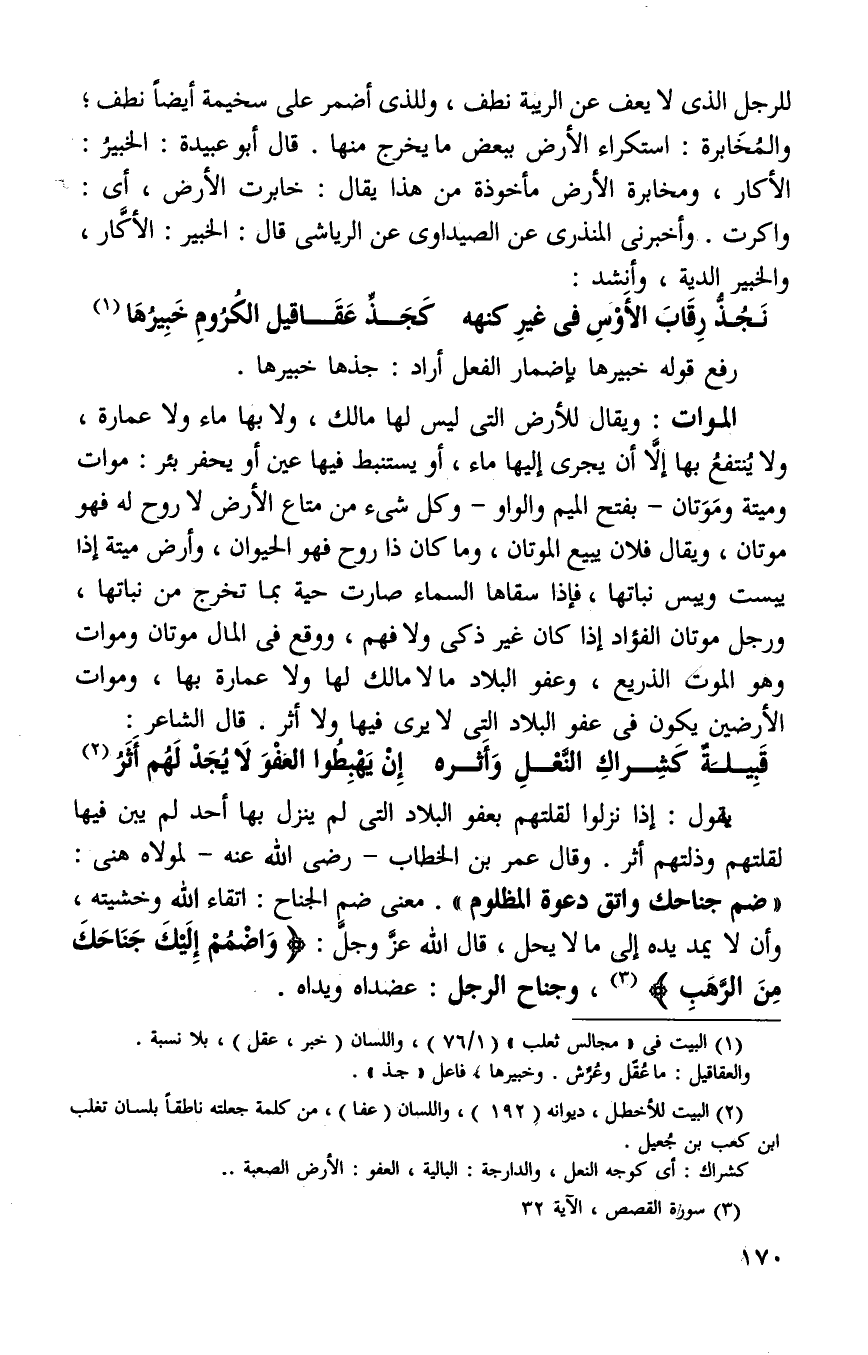 للرجل الذى لا يعف عن الريبة نطف ، وللذى أضمر على سخيمة أيضاً نطف ؛
والمُخَابرة : استكراء الأرض ببعض ما يخرج منها . قال أبو عبيدة : الخبيرُ :
الأكار ، ومخابرة الأرض مأخوذة من هذا يقال : خابرت الأرض ، أى :
واكرت . وأخبرنى المنذرى عن الصيداوى عن الرياشى قال : الخبير : الأكَّار ،
والخبير الدية ، وأنشد :
نَجُذُّ رِقَابَ الأَوْسِ فى غيرِ كنهه كَجَـــذِّ عَقَـــاقيل الكُرُومِ خَبِيرُهَا (١)
رفع قوله خبيرها بإضمار الفعل أراد : جذها خبيرها .
الموات : ويقال للأرض التى ليس لها مالك ، ولا بها ماء ولا عمارة ،
ولا يُنتفعُ بها إلَّا أن يجرى إليها ماء ، أو يستنبط فيها عين أو يحفر بئر : موات
وميتة ومَوَتان – بفتح الميم والواو – وكل شىء من متاع الأرض لا روح له فهو
موتان ، ويقال فلان يبيع الموتان ، وما كان ذا روح فهو الحيوان ، وأرض ميتة إذا
يبست ويبس نباتها ، فإذا سقاها السماء صارت حية بما تخرج من نباتها ،
ورجل موتان الفؤاد إذا كان غير ذكى ولا فهم ، ووقع فى المال موتان وموات
وهو الموت الذريع ، وعفو البلاد ما لا مالك لها ولا عمارة بها ، وموات
الأرضين يكون فى عفو البلاد التى لا يرى فيها ولا أثر . قال الشاعر :
قَبِيــلَةٌ كَشِــراكِ النَّعْــلِ وَأَثــره إِنْ يَهْبِطُوا العَفْوَ لَا يُجَدْ لَهُم أَثَرُ (٢)
يقول : إذا نزلوا لقلتهم بعفو البلاد التى لم ينزل بها أحد لم يبن فيها
لقلتهم وذلتهم أثر . وقال عمر بن الخطاب – رضى الله عنه – لمولاه هنى :
« ضم جناحك واتق دعوة المظلوم » . معنى ضم الجناح : اتقاء الله وخشيته ،
وأن لا يمد يده إلى ما لا يحل ، قال الله عزَّ وجلَّ : ﴿ وَاضْمُمْ إِلَيْكَ جَنَاحَكَ
مِنَ الرَّهَبِ ﴾ (٣) ، وجناح الرجل : عضداه ويداه .
(١) البيت فى « مجالس ثعلب » ( ٧٦/١ ) ، واللسان ( خبر ، عقل ) ، بلا نسبة .
والعقاقيل : ما عُقّل وعُرّش . وخبيرها ، فاعل « جذ » .
(٢) البيت للأخطل ، ديوانه ( ١٩٢ ) ، واللسان ( عفا ) ، من كلمة جعلته ناطقاً بلسان تغلب
ابن كعب بن جُعيل .
كشراك : أى كوجه النعل ، والدارجة : البالية ، العفو : الأرض الصعبة ..
(٣) سورة القصص ، الآية ٣٢
١٧٠